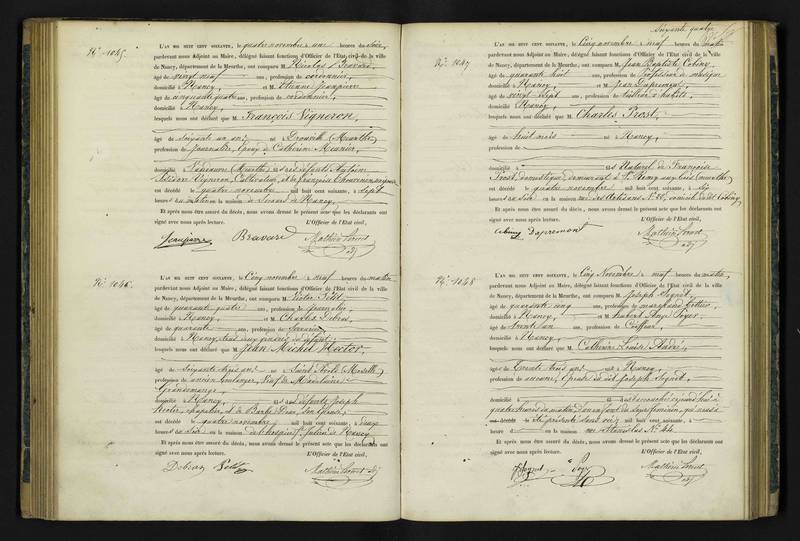 N.º 1045.
L'AN MIL HUIT CENT SOIXANTE, le quatre novembre à une heures du soir,
pardevant nous Adjoint au Maire, délégué faisant fonctions d'Officier de l'Etat civil de la ville
de Nancy, département de la Meurthe, ont comparu M. Nicolas
âgé de vingt neuf ans, profession de cordonnier,
domicilié à Nancy, et M. Etienne Jeanpierre
âgé de cinquante quatre ans, profession de cordonnier,
domicilié à Nancy,
lesquels nous ont déclaré que M. François Vigneron,
âgé de soixante un ans né à (Meurthe)
profession de journalier, Epoux de Catherine Meunier,
domicilié à (Meurthe) et des défunts
Vigneron, Cultivateur, et de Françoise
est décédé le quatre novembre mil huit cent soixante, à sept
heures du matin en la maison de Secours de Nancy,
Et après nous être assuré du décès, nous avons dressé le présent acte que les déclarants ont
signé avec nous après lecture. L'Officier de l'Etat civil,
Jeanpierre
N.º 1046.
L'AN MIL HUIT CENT SOIXANTE, le Cinq novembre à neuf heures du matin,
pardevant nous Adjoint au Maire, délégué faisant fonctions d'Officier de l'Etat civil de la ville
de Nancy, département de la Meurthe, ont comparu M. Victor Petit
âgé de quarante quatre ans, profession de journalier
domicilié à Nancy, et M. Charles
âgé de quarante ans, profession de Serrurier
domicilié à Nancy, tous deux gendres du défunt
lesquels nous ont déclaré que M. Jean Michel Hector,
âgé de soixante treize ans né à Saint (Moselle)
profession de ancien boulanger, Veuf de Madelaine
Grandemange
domicilié à Nancy, des défunts Joseph
Hector, chapelier, et de Barbe son épouse,
est décédé le quatre novembre mil huit cent soixante, à deux
heures du soir en la maison de l'hospice St Julien de Nancy
Et après nous être assuré du décès, nous avons dressé le présent acte que les déclarants ont
signé avec nous après lecture. L'Officier de l'Etat civil,
Petit
Soixante quatre
N.º 1047
L'AN MIL HUIT CENT SOIXANTE, le Cinq novembre à neuf heures du matin
pardevant nous Adjoint au Maire, délégué faisant fonctions d'Officier de l'Etat civil de la ville
de Nancy, département de la Meurthe, ont comparu M. Jean Baptiste
âgé de quarante huit ans, profession de Professeur de musique
domicilié à Nancy, et M. Jean Dapremont,
âgé de vingt sept ans, profession de tailleur d'habits,
domicilié à Nancy,
lesquels nous ont déclaré que M. Charles Prost,
âgé de huit mois né à Nancy,
profession de
domicilié à fils Naturel de Françoise
Prost, domestique, demeurant à St Remy aux bois (meurthe)
est décédé le quatre novembre mil huit cent soixante, à six
heures du soir en la maison rue des Artisans N.º
Et après nous être assuré du décès, nous avons dressé le présent acte que les déclarants ont
signé avec nous après lecture. L'Officier de l'Etat civil,
Dapremont
N.º 1048
L'AN MIL HUIT CENT SOIXANTE, le Cinq Novembre à neuf heures du matin,
pardevant nous Adjoint au Maire, délégué faisant fonctions d'Officier de l'Etat civil de la ville
de Nancy, département de la Meurthe, ont comparu M. Joseph
âgé de quarante cinq ans, profession de marchand
domicilié à Nancy, et M. Ange
âgé de trente un ans, profession de Coiffeur,
domicilié à Nancy,
lesquels nous ont déclaré que M. Catherine Louise André,
âgé de trente trois ans née à Nancy,
profession de aucune, Epouse du dit Joseph
domicilié à est accouchée aujourd'hui à
quatre heures du matin d'un enfant du sexe féminin, qui nous a
est décédé le été présenté sans vie mil huit cent soixante, à
heures en la maison rue Stanislas N.º 44
Et après nous être assuré du décès, nous avons dressé le présent acte que les déclarants ont
signé avec nous après lecture. L'Officier de l'Etat civil,